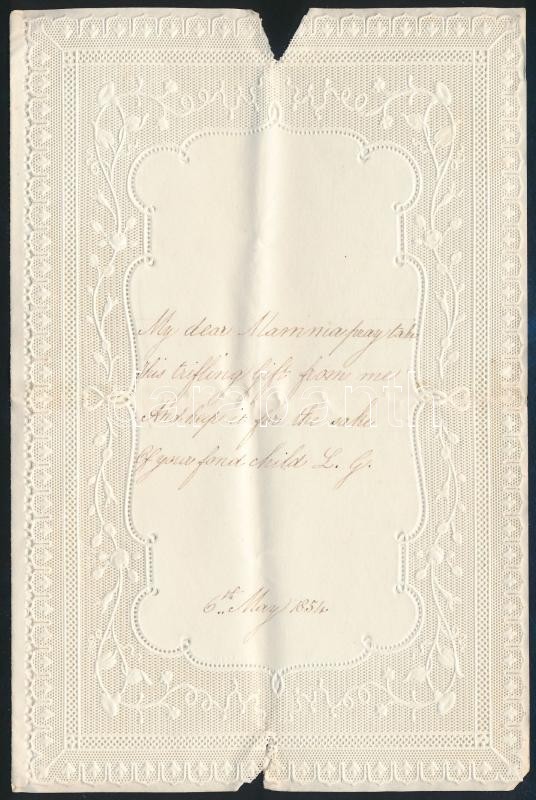 My dear Mamma pray take
This trifling Gift from me
And keep it for the sake
Of your fond child L. G.
6th May 1854
darabanth